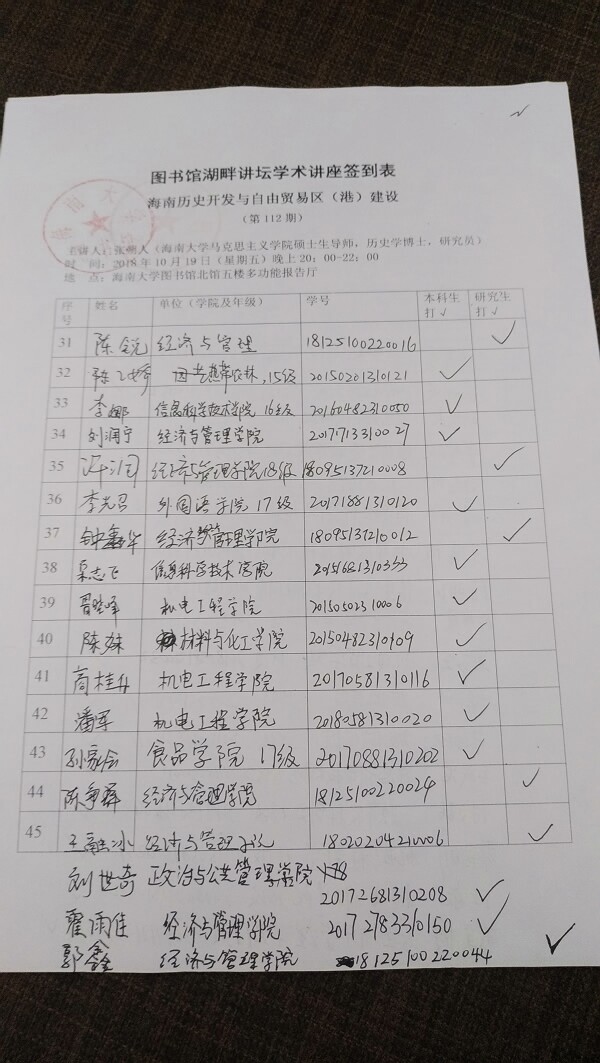 图书馆湖畔讲坛学术讲座签到表
海南历史开发与自由贸易区（港）建设
（第 112 期）
主讲人：张朔人（海南大学马克思主义学院硕士生导师，历史学博士，研究员）
时 间：2018 年 10 月 19 日（星期五）晚上 20：00-22：00
地 点：海南大学图书馆北馆五楼多功能报告厅
序号 姓名 单位（学院及年级） 学号 本科生打√ 研究生打√
31 陈锐 经济与管理 18125100220016 √
32 陈 热带农林，15级 20150201310121 √
33 李娜 信息科学技术学院 16级 20160482310050 √
34 刘润宁 经济与管理学院 20171713310027 √
35 许闰 经济与管理学院18级 18095137210008 √
36 李光召 外国语学院 17级 20171881310120 √
37 钟鑫华 经济与管理学院 18095137210012 √
38 志飞 信息科学技术学院 20151681310333 √
39 晓峰 机电工程学院 20150502310006 √
40 陈妹 材料与化工学院 20150482310109 √
41 商桂升 机电工程学院 20170581310116 √
42 潘军 机电工程学院 20180581310020 √
43 孙家会 食品学院 17级 20170881310202 √
44 陈争辉 经济与管理学院 18125100220024 √
45 王融冰 经济与管理学院 18020204210006 √
刘世奇 政治与公共管理学院
20172681310208 √
翟雨佳 经济与管理学院 20172783310150 √
郭鑫 经济与管理学院 18125100220044 √